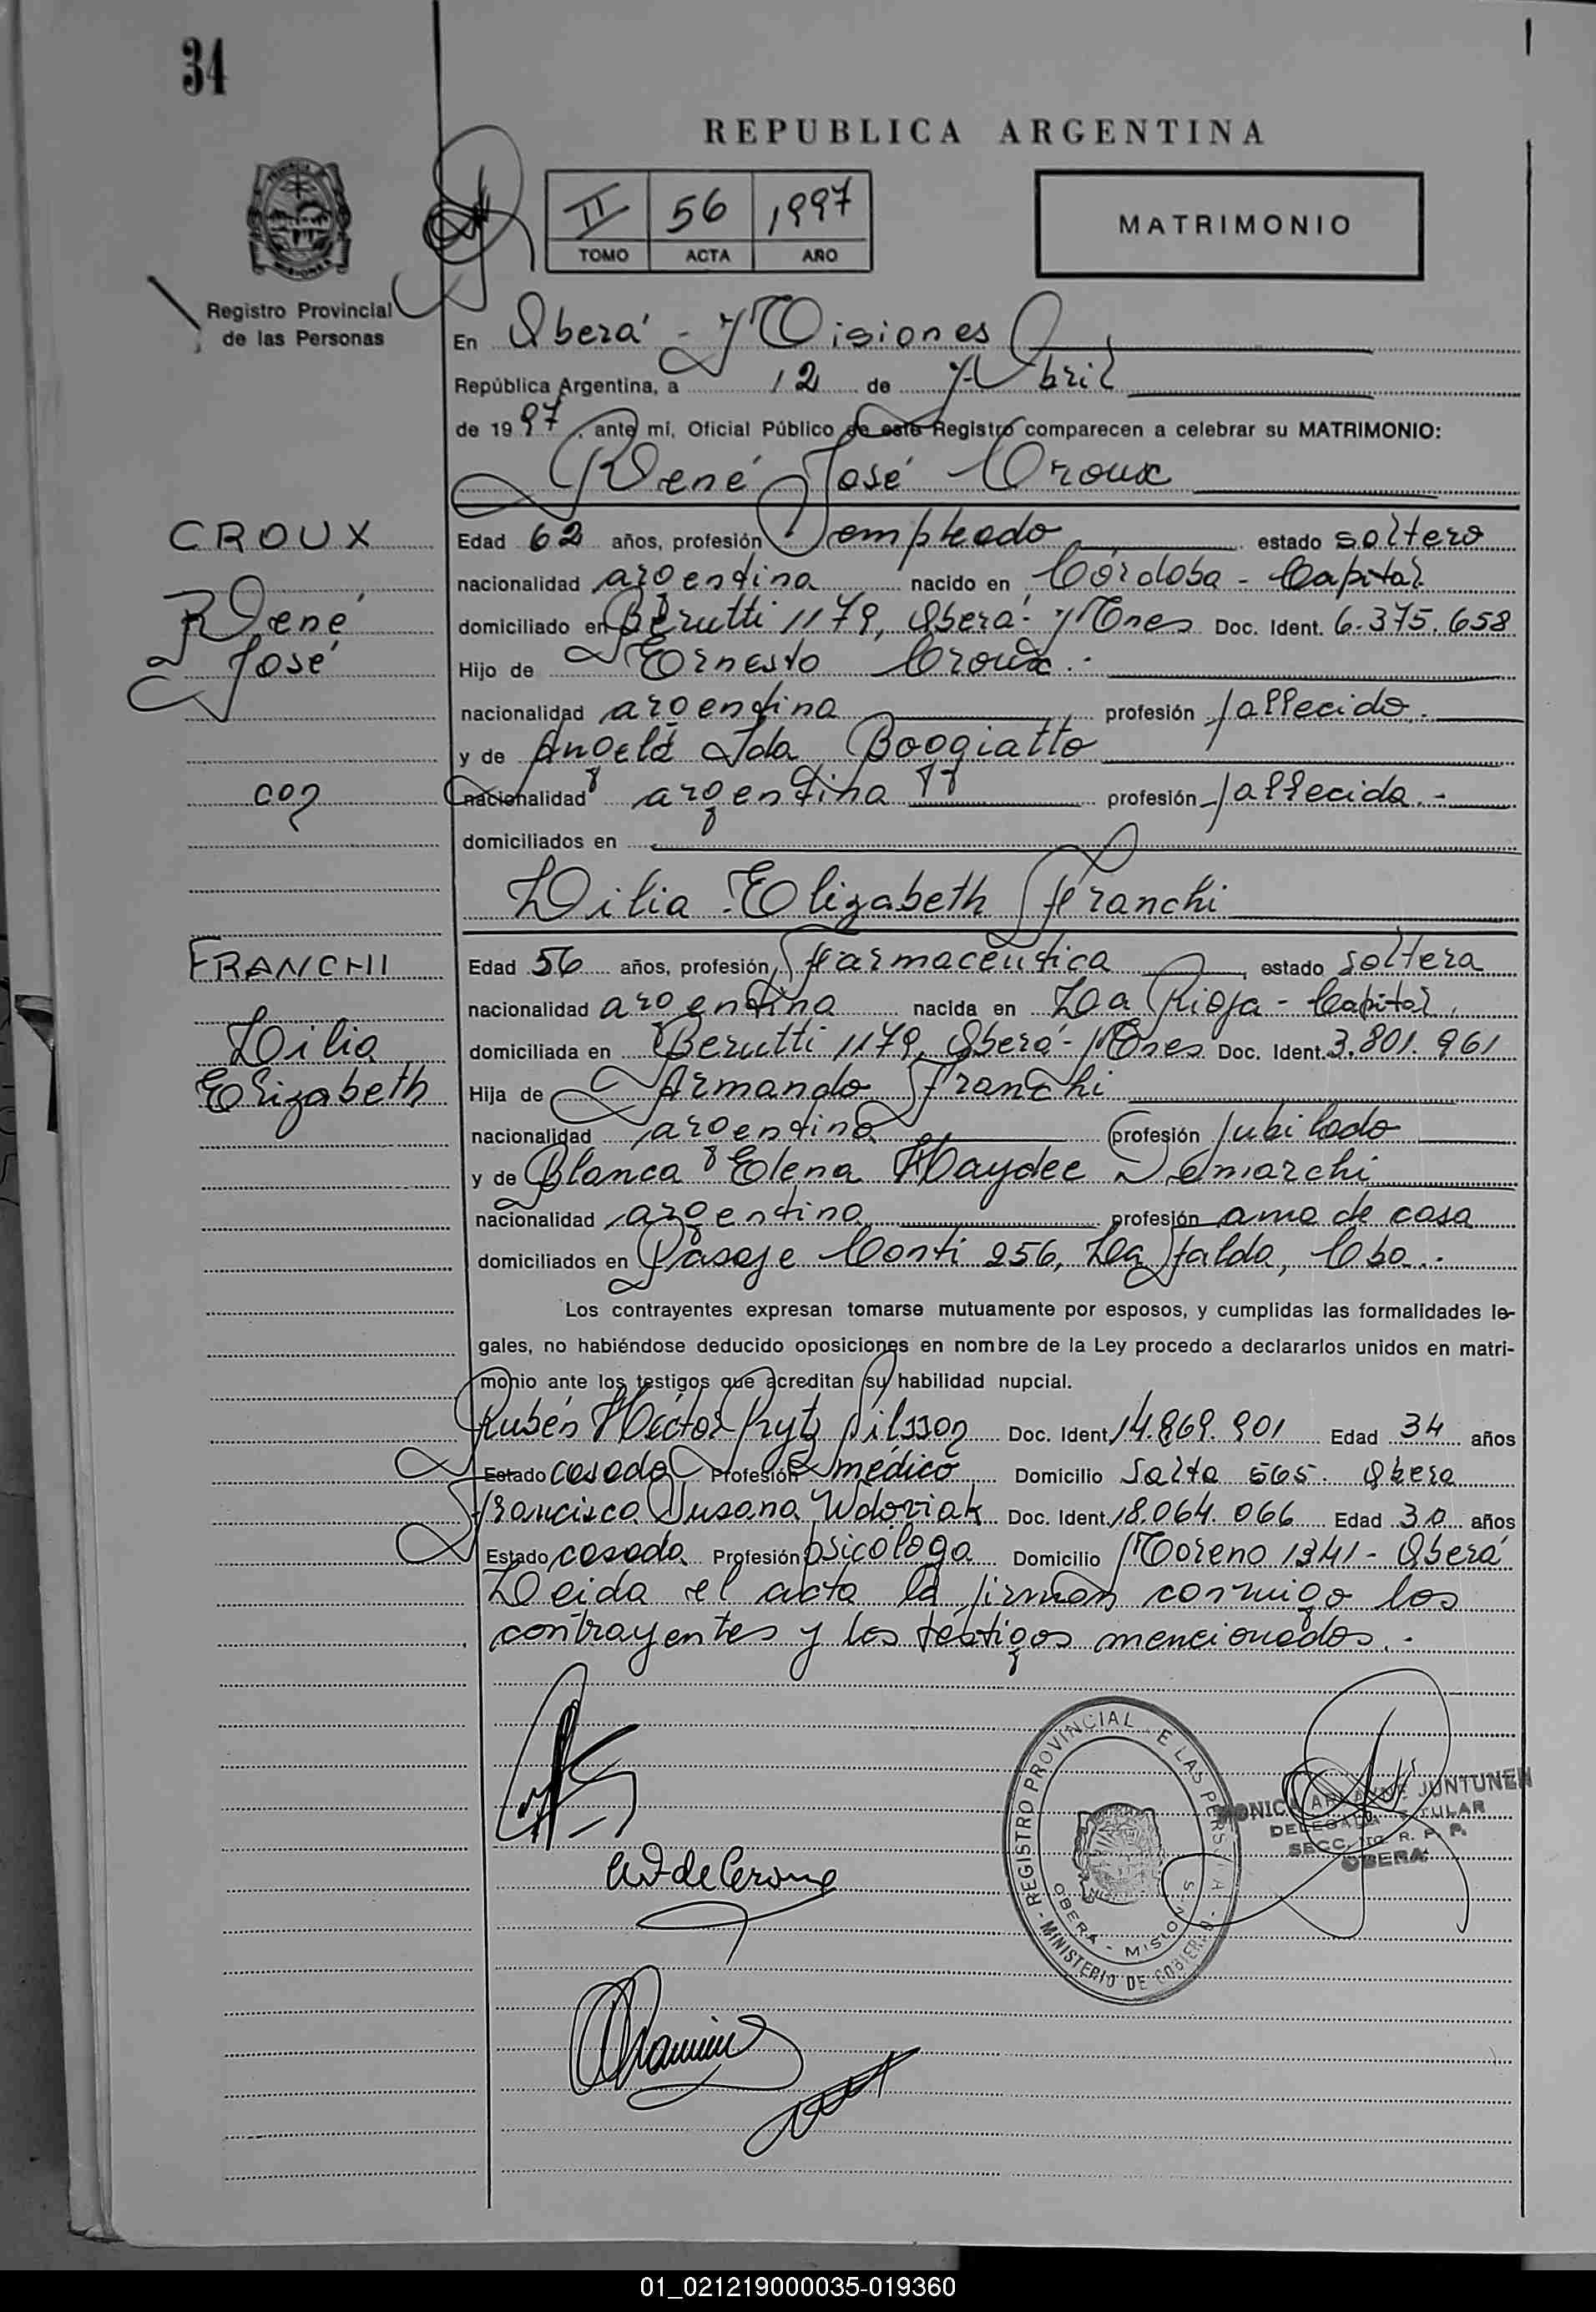 34
REPUBLICA ARGENTINA
II 56 1997
TOMO ACTA AÑO
MATRIMONIO
Registro Provincial
de las Personas
En Oberá - Misiones
República Argentina, a 12 de Abril
de 1997, ante mí, Oficial Público de este Registro comparecen a celebrar su MATRIMONIO:
René José Croux
CROUX
Edad 62 años, profesión empleado estado soltero
nacionalidad argentina nacido en Córdoba - Capital
René
domiciliado en Berutti 1179, Oberá - Mnes Doc. Ident. 6.375.658
José
Hijo de Ernesto Croux.-
nacionalidad argentina profesión fallecido.-
y de Angela Ida Boggiatto
con
nacionalidad argentina profesión fallecida.-
domiciliados en
Lilia Elizabeth Franchi
FRANCHI
Edad 56 años, profesión Farmacéutica estado soltera
nacionalidad argentina nacida en La Rioja - Capital.
Lilia
domiciliada en Berutti 1179, Oberá - Mnes Doc. Ident. 3.801.961
Elizabeth
Hija de Armando Franchi
nacionalidad argentina profesión jubilado
y de Blanca Elena Haydee Demarchi
nacionalidad argentina profesión ama de casa
domiciliados en Pasaje Conti 256, La Falda, Cba.-
Los contrayentes expresan tomarse mutuamente por esposos, y cumplidas las formalidades le-
gales, no habiéndose deducido oposiciones en nombre de la Ley procedo a declararlos unidos en matri-
monio ante los testigos que acreditan su habilidad nupcial.
Rubén Héctor Kytz Nilsson Doc. Ident. 14.869.901 Edad 34 años
Estado casado Profesión médico Domicilio Salta 565. Oberá
Francisca Susana Wdoviak Doc. Ident. 18.064.066 Edad 30 años
Estado casada Profesión psicóloga Domicilio Moreno 1341 - Oberá
Leída el acta la firman conmigo los
contrayentes y los testigos mencionados.-
REGISTRO PROVINCIAL DE LAS PERSONAS
OBERA - MISIONES
MINISTERIO DE GOBIERNO
MONICA JUNTUNEN
DELEGADA TITULAR
SECC. R. P. P.
OBERA
01_021219000035-019360